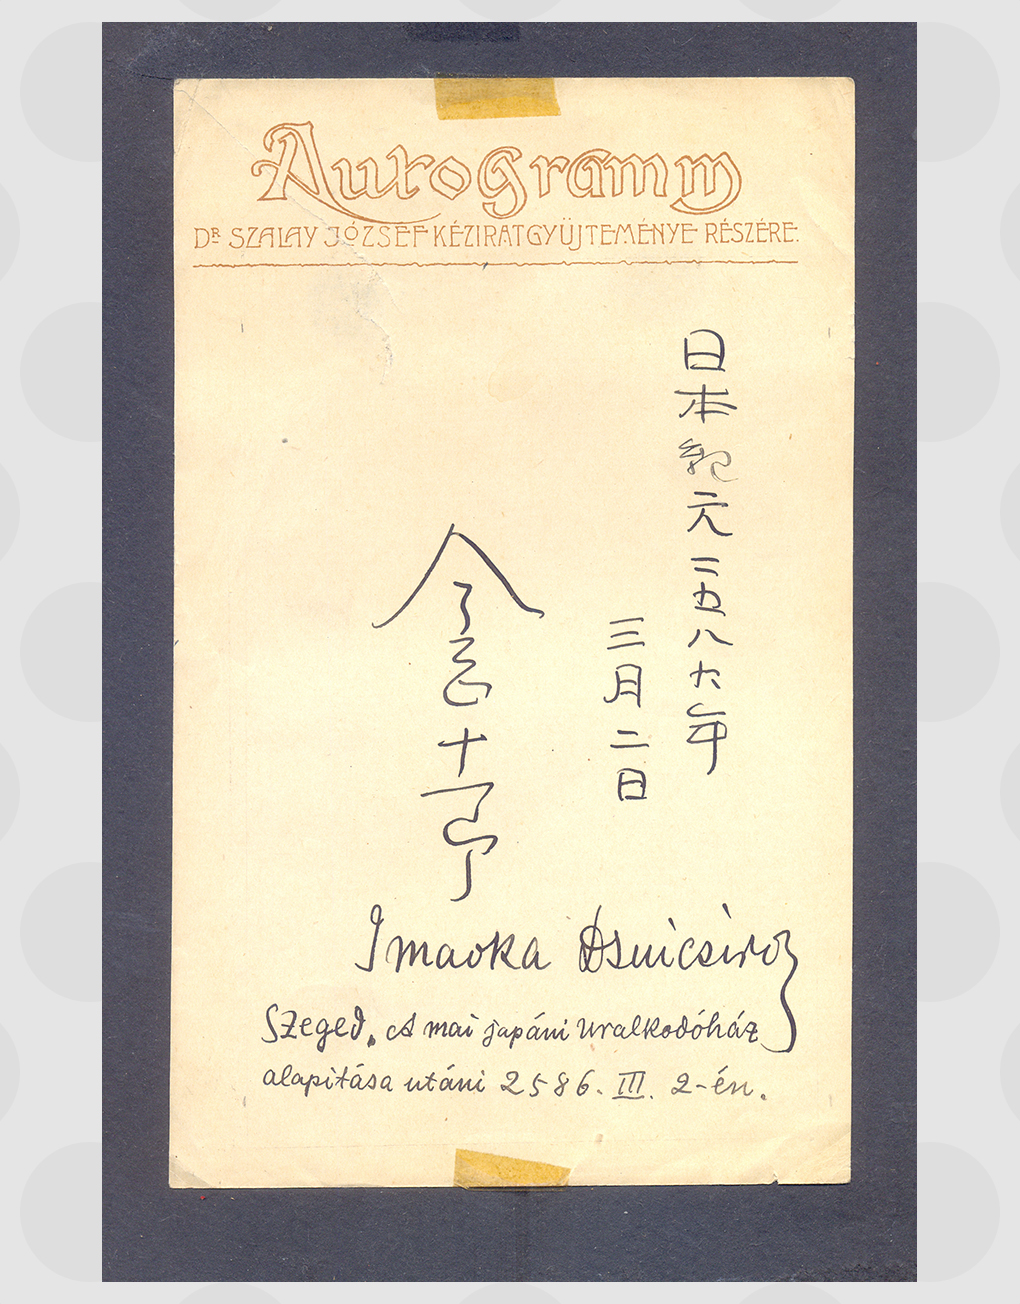 Autogramm
DR SZALAY JÓZSEF KÉZIRATGYŰJTEMÉNYE RÉSZÉRE.
日本紀元二五八六年
三月二日
今岡十一郎
Imaoka Dsuicsiro
Szeged. A mai japáni uralkodóház
alapitása utáni 2586. III. 2-én.